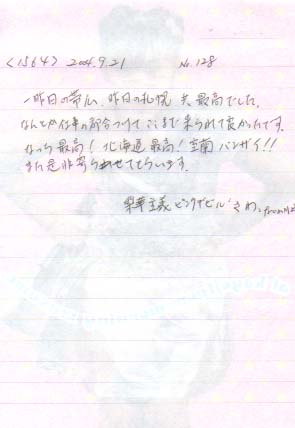 <1564> 2004.9.21 No.128
一昨日の帯広、昨日の札幌 共、最高でした。
なんとか仕事の都合つけて ここまで来られて良かったです。
なっち最高! 北海道最高! 室蘭 バンザイ!!
また是非寄らせてもらいます。
梨華主義 ピンクザビル きわ。from